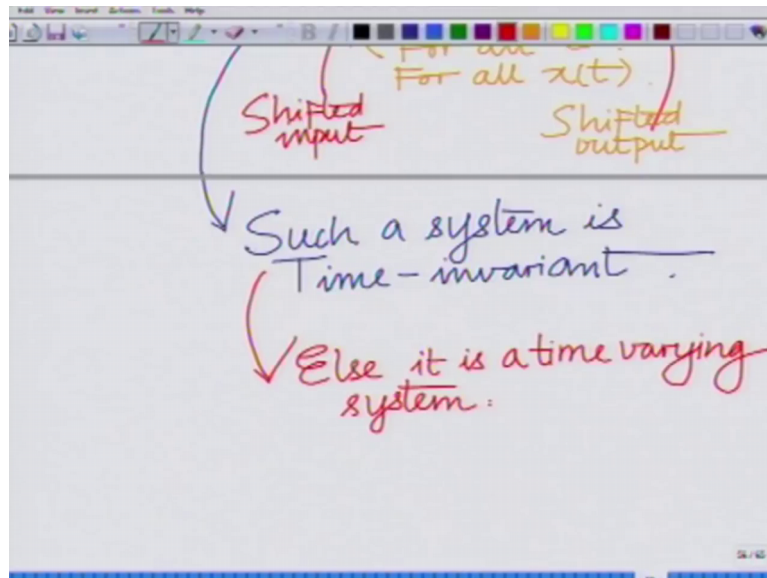 Edit View Insert Actions Tools Help
For all
For all x(t).
Shifted
input
Shifted
output
Such a system is
Time-invariant.
Else it is a time varying
system.